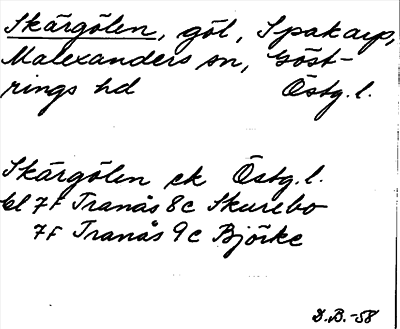 Skärgölen, göl, Spakarp,
Malexanders sn, Göst-
rings hd Östg. l.
Skärgölen ek Östg. l.
bl 7F Tranås 8c Skurebo
7F Tranås 9c Björke
D.B.-58